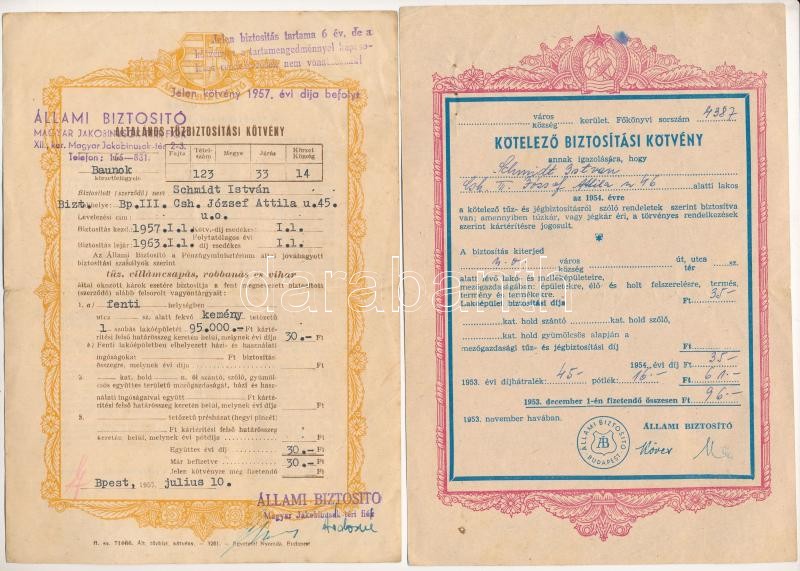 Jelen biztosítás tartama 6 év, de a
tartamengedménnyel kapcso-
nem vonatkoznak
Jelen kötvény 1957. évi dija befolyt.
ÁLLAMI BIZTOSITÓ
MAGYAR JAKOBINUSOK
XII. ker. Magyar Jakobinusok tere 2-3.
Telefon: 165-831.
ÁLTALÁNOS TŰZBIZTOSÍTÁSI KÖTVÉNY
Baunok
körzetfelügyelő
Fajta Tételszám Megye Járás Körzet Község
123 33 14
Biztosított (szerződő) neve Schmidt István
Bizt. helye: Bp.III. Csh. József Attila u.45.
Levelezési cím: u.o.
Biztosítás kezd. 1957.I.1. Kötv. díj esedékes: I.1.
Biztosítás lejár 1963.I.1. Folytatólagos évi díj esedékes I.1.
Az Állami Biztosító a Pénzügyminisztérium által jóváhagyott
biztosítási szabályok szerint
tűz, villámcsapás, robbanás és vihar
által okozott károk esetére biztosítja a fent megnevezett biztosított
(szerződő) alább felsorolt vagyontárgyait:
1. a) fenti helységben
utca sz. alatt fekvő kemény tetőzetű
1 szobás lakóépületét 95.000.- Ft kárté-
rítési felső határösszeg keretén belül, melynek évi díja 30.- Ft
b) Fenti lakóépületben elhelyezett házi- és használati
ingóságokat Ft biztosítási
összegre, melynek évi díja Ft
2. kat. hold n. öl szántó, szőlő, gyümöl-
csös együttes területű mezőgazdasági, házi és hasz-
nálati ingóságaival együtt Ft kártérítési
felső határösszeg keretén belül, melynek évi díja Ft
3. tetőzetű présházat (hegyi pincét)
Ft kártérítési felső határösszeg
keretén belül, melynek évi pótdíja Ft
Együttes évi díj 30.- Ft
Már befizetve 30.- Ft
Jelen kötvényre még fizetendő Ft
Bpest, 1957. július 10.
ÁLLAMI BIZTOSITÓ
Magyar Jakobinusok téri fiók
R. sz. 71066. Ált. tűzbizt. kötvény. — Egyetemi Nyomda, Budapest
város
község kerület. Főkönyvi sorszám 4387
KÖTELEZŐ BIZTOSÍTÁSI KÖTVÉNY
annak igazolására, hogy
Schmidt István
Csh. József Attila u 46 alatti lakos
az 1954. évre
a kötelező tűz- és jégbiztosításról szóló rendeletek szerint biztosítva
van; amennyiben tűzkár, vagy jégkár éri, a törvényes rendelkezések
szerint kártérítésre jogosult.
A biztosítás kiterjed
u. o. város
község út, utca
tér sz.
alatt lévő lakó- és melléképületeire,
mezőgazdaságában: épületeire, élő és holt felszerelésre, termés,
termény és termékeire.
Lakóépület biztosítási díja Ft 35.-
kat. hold szántó kat. hold szőlő,
kat. hold gyümölcsös alapján a
mezőgazdasági tűz- és jégbiztosítási díj Ft
1954. évi díj Ft 35.-
1953. évi díjhátralék: 45.- pótlék: 16.- Ft 61.-
1953. december 1-én fizetendő összesen Ft 96.-
1953. november havában.
ÁLLAMI BIZTOSÍTÓ
ÁLLAMI BIZTOSÍTÓ
ÁB
BUDAPEST
darabanth